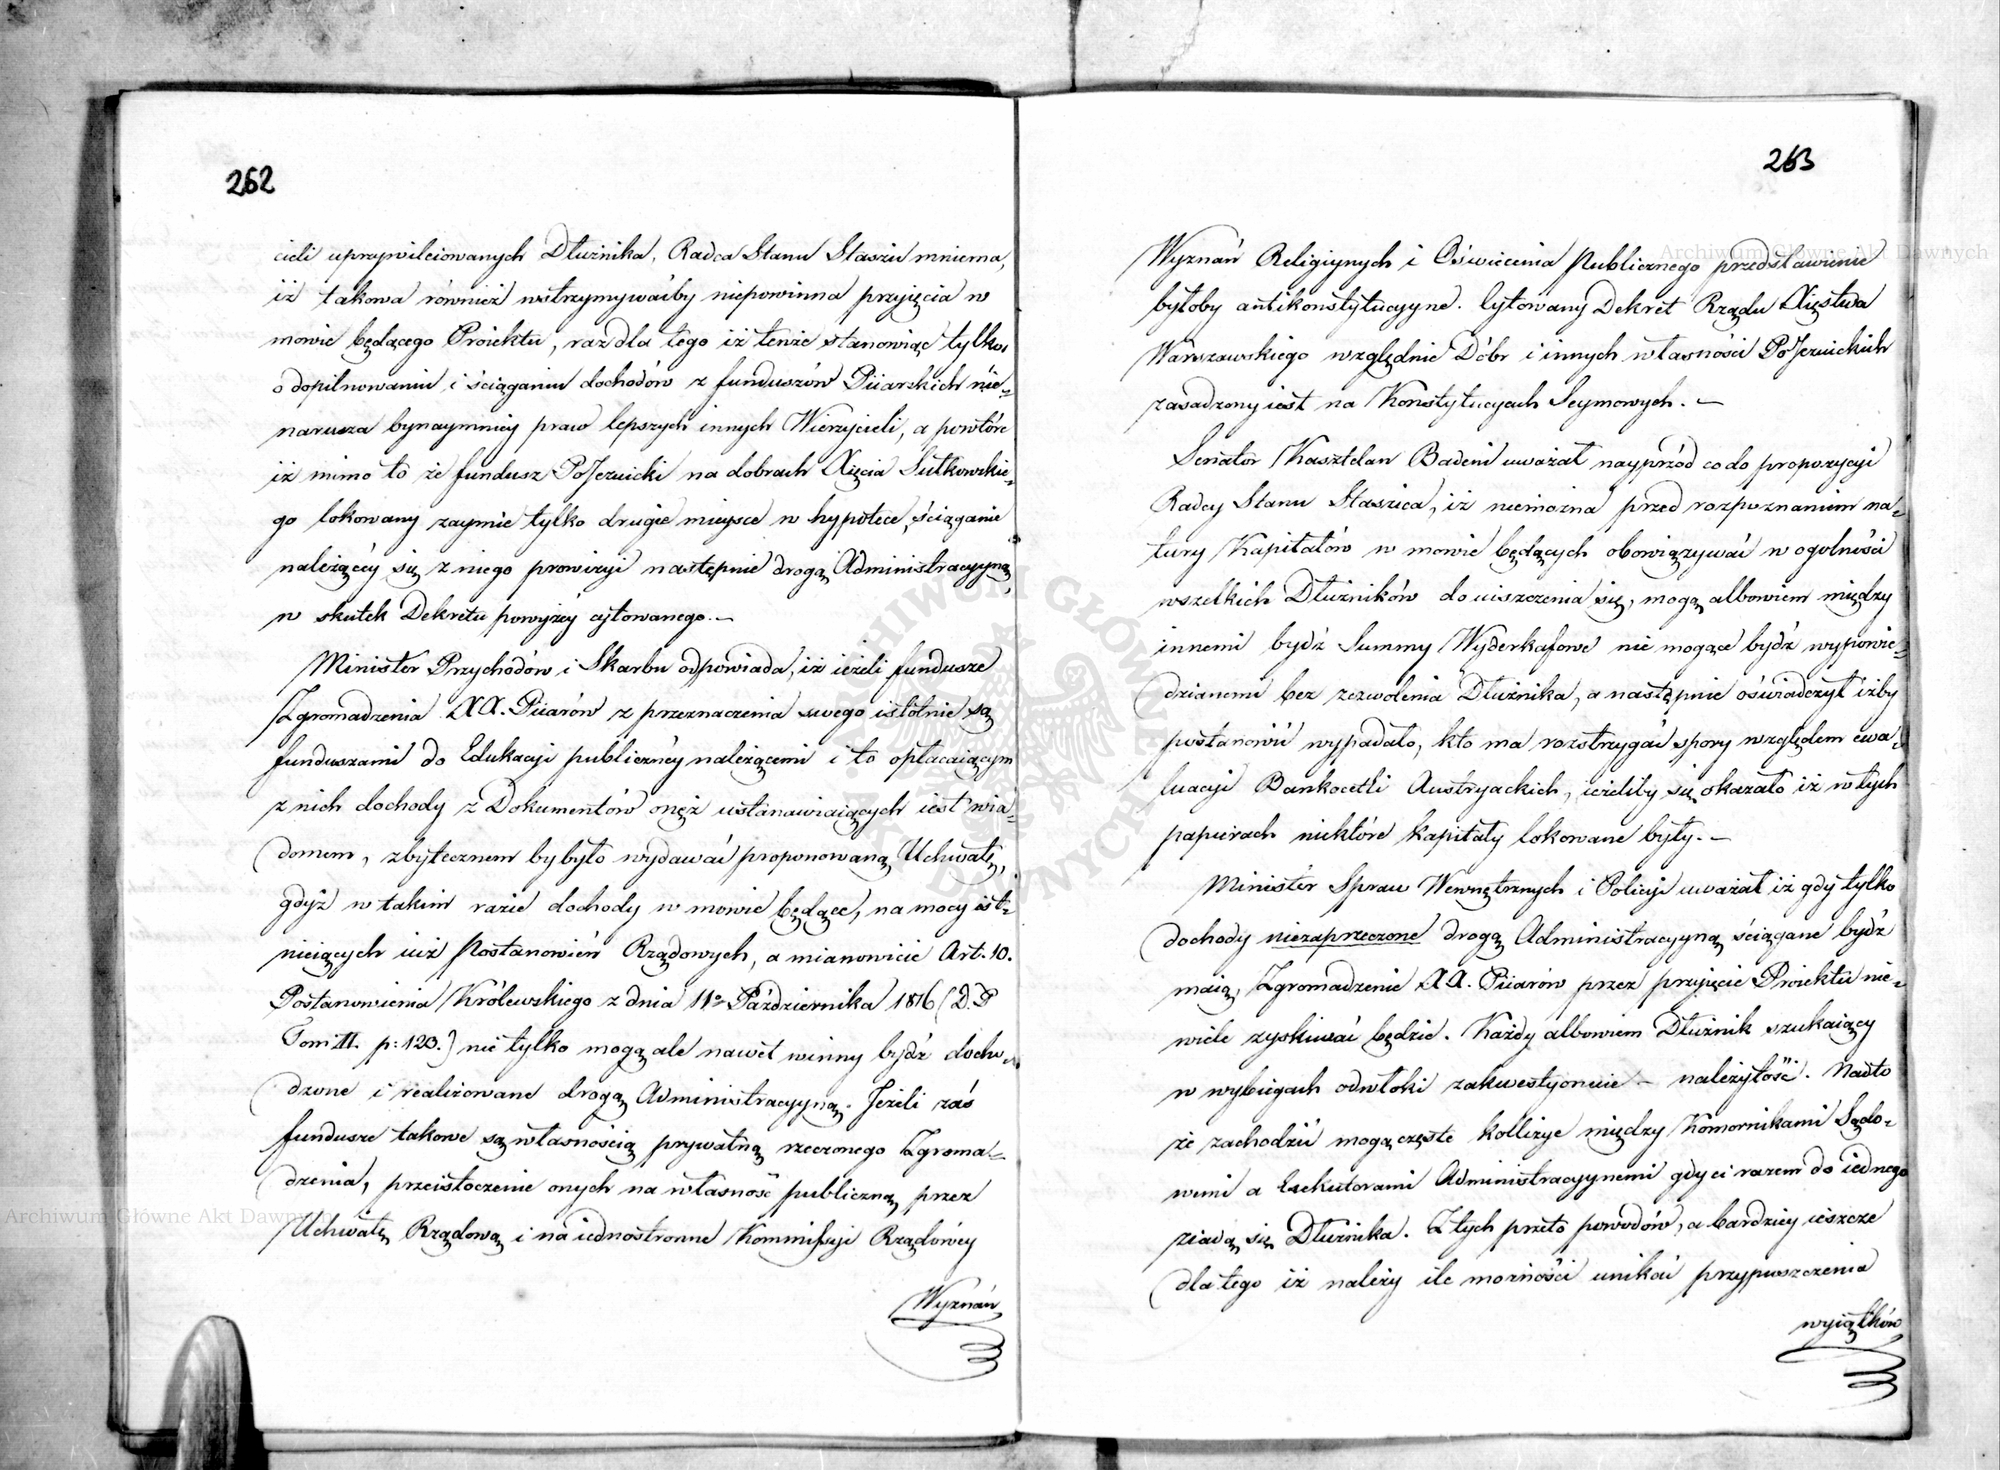 262
cieli uprzywileiowanych Dłużnika, Radca Stanu Staszic mniema,
iż takowa również wstrzymywaćby niepowinna przyięcia w
mowie będącego Proiektu, raz dla tego iż tenże stanowiąc tylko
o dopilnowaniu i ściąganiu dochodów z funduszów Piiarskich nie-
narusza bynaymniey praw lepszych innych Wierzycieli, a powtóre
iż mimo to że fundusz PoJezuicki na dobrach Xięcia Sułkowskie-
go lokowany zaymie tylko drugie mieysce w hypotece, ściąganie
należącéy się z niego prowizyi nastąpnie drogą Administracyyną,
w skutek Dekretu powyżéy cytowanego. —
Minister Przychodów i Skarbu odpowiada, iż ieżeli fundusze
Zgromadzenia XX. Piiarów z przeznaczenia swego istotnie są
funduszami do Edukacyi publicznéy należącemi i to opłacaiącym
z nich dochody z Dokumentów onęż ustanawiaiących iest wia-
domem, zbytecznem byłyto wydawać proponowaną Uchwałę,
gdyż w takim razie dochody w mowie będące, na mocy ist-
nieiących iuż Postanowień Rządowych, a mianowicie Art. 10.
Postanowienia Królewskiego z dnia 11º Października 1816 (D. P
Tom II. p: 120.) nie tylko mogą ale nawet winny bydź docho-
dzone i realizowane drogą Administracyyną. Jeżeli zaś
fundusze takowe są własnością prywatną rzeczonego Zgroma-
dzenia, przeistoczenie onych na własność publiczną, przez
Uchwałę Rządową i na iednostronne Kommissyi Rządowéy
Wyznań
263
Wyznań Religiynych i Oświecenia Publicznego przedstawienie
byłoby antikonstytucyyne. Cytowany Dekret Rządu Xięstwa
Warszawskiego względnie Dóbr i innych własności PoJezuickich
zasadzony iest na Konstytucyach Seymowych. —
Senator Kasztelan Badeni uważał nayprzód co do propozycyi
Radcy Stanu Staszica, iż niemożna przed rozpoznaniem na-
tury Kapitałów w mowie będących obowiązywać w ogolności
wszelkich Dłużników do uiszczenia się, mogą albowiem między
innemi bydź Summy Wyderkafowe nie mogące bydź wypowie-
dzianemi bez zezwolenia Dłużnika, a następnie oświadczył iżby
postanowić wypadało, kto ma rozstrzygać spory względem ewa-
luacyi Bankocetli Austryackich, ieżeliby się okazało iż w tych
papierach niektóre kapitały lokowane były. —
Minister Spraw Wewnętrznych i Policyi uważał iż gdy tylko
dochody niezaprzeczone drogą Administracyyną ściągane bydź
maią, Zgromadzenie XX. Piiarów przez przyięcie Proiektu nie-
wiele zyskiwać będzie. Każdy albowiem Dłużnik szukaiący
w wybiegach odwłoki zakwestyonuie — należytość. Nadto
że zachodzić mogą częste kollizye między Komornikami Sądo-
wemi a Exekutorami Administracyynemi gdy ci razem do iednego
ziadą się Dłużnika. Z tych przeto powodów, a bardziey ieszcze
dla tego iż należy ile możności unikać przypuszczenia
wyiątków
Archiwum Główne Akt Dawnych
Archiwum Główne Akt Dawnych
ARCHIWUM GŁÓWNE AKT DAWNYCH